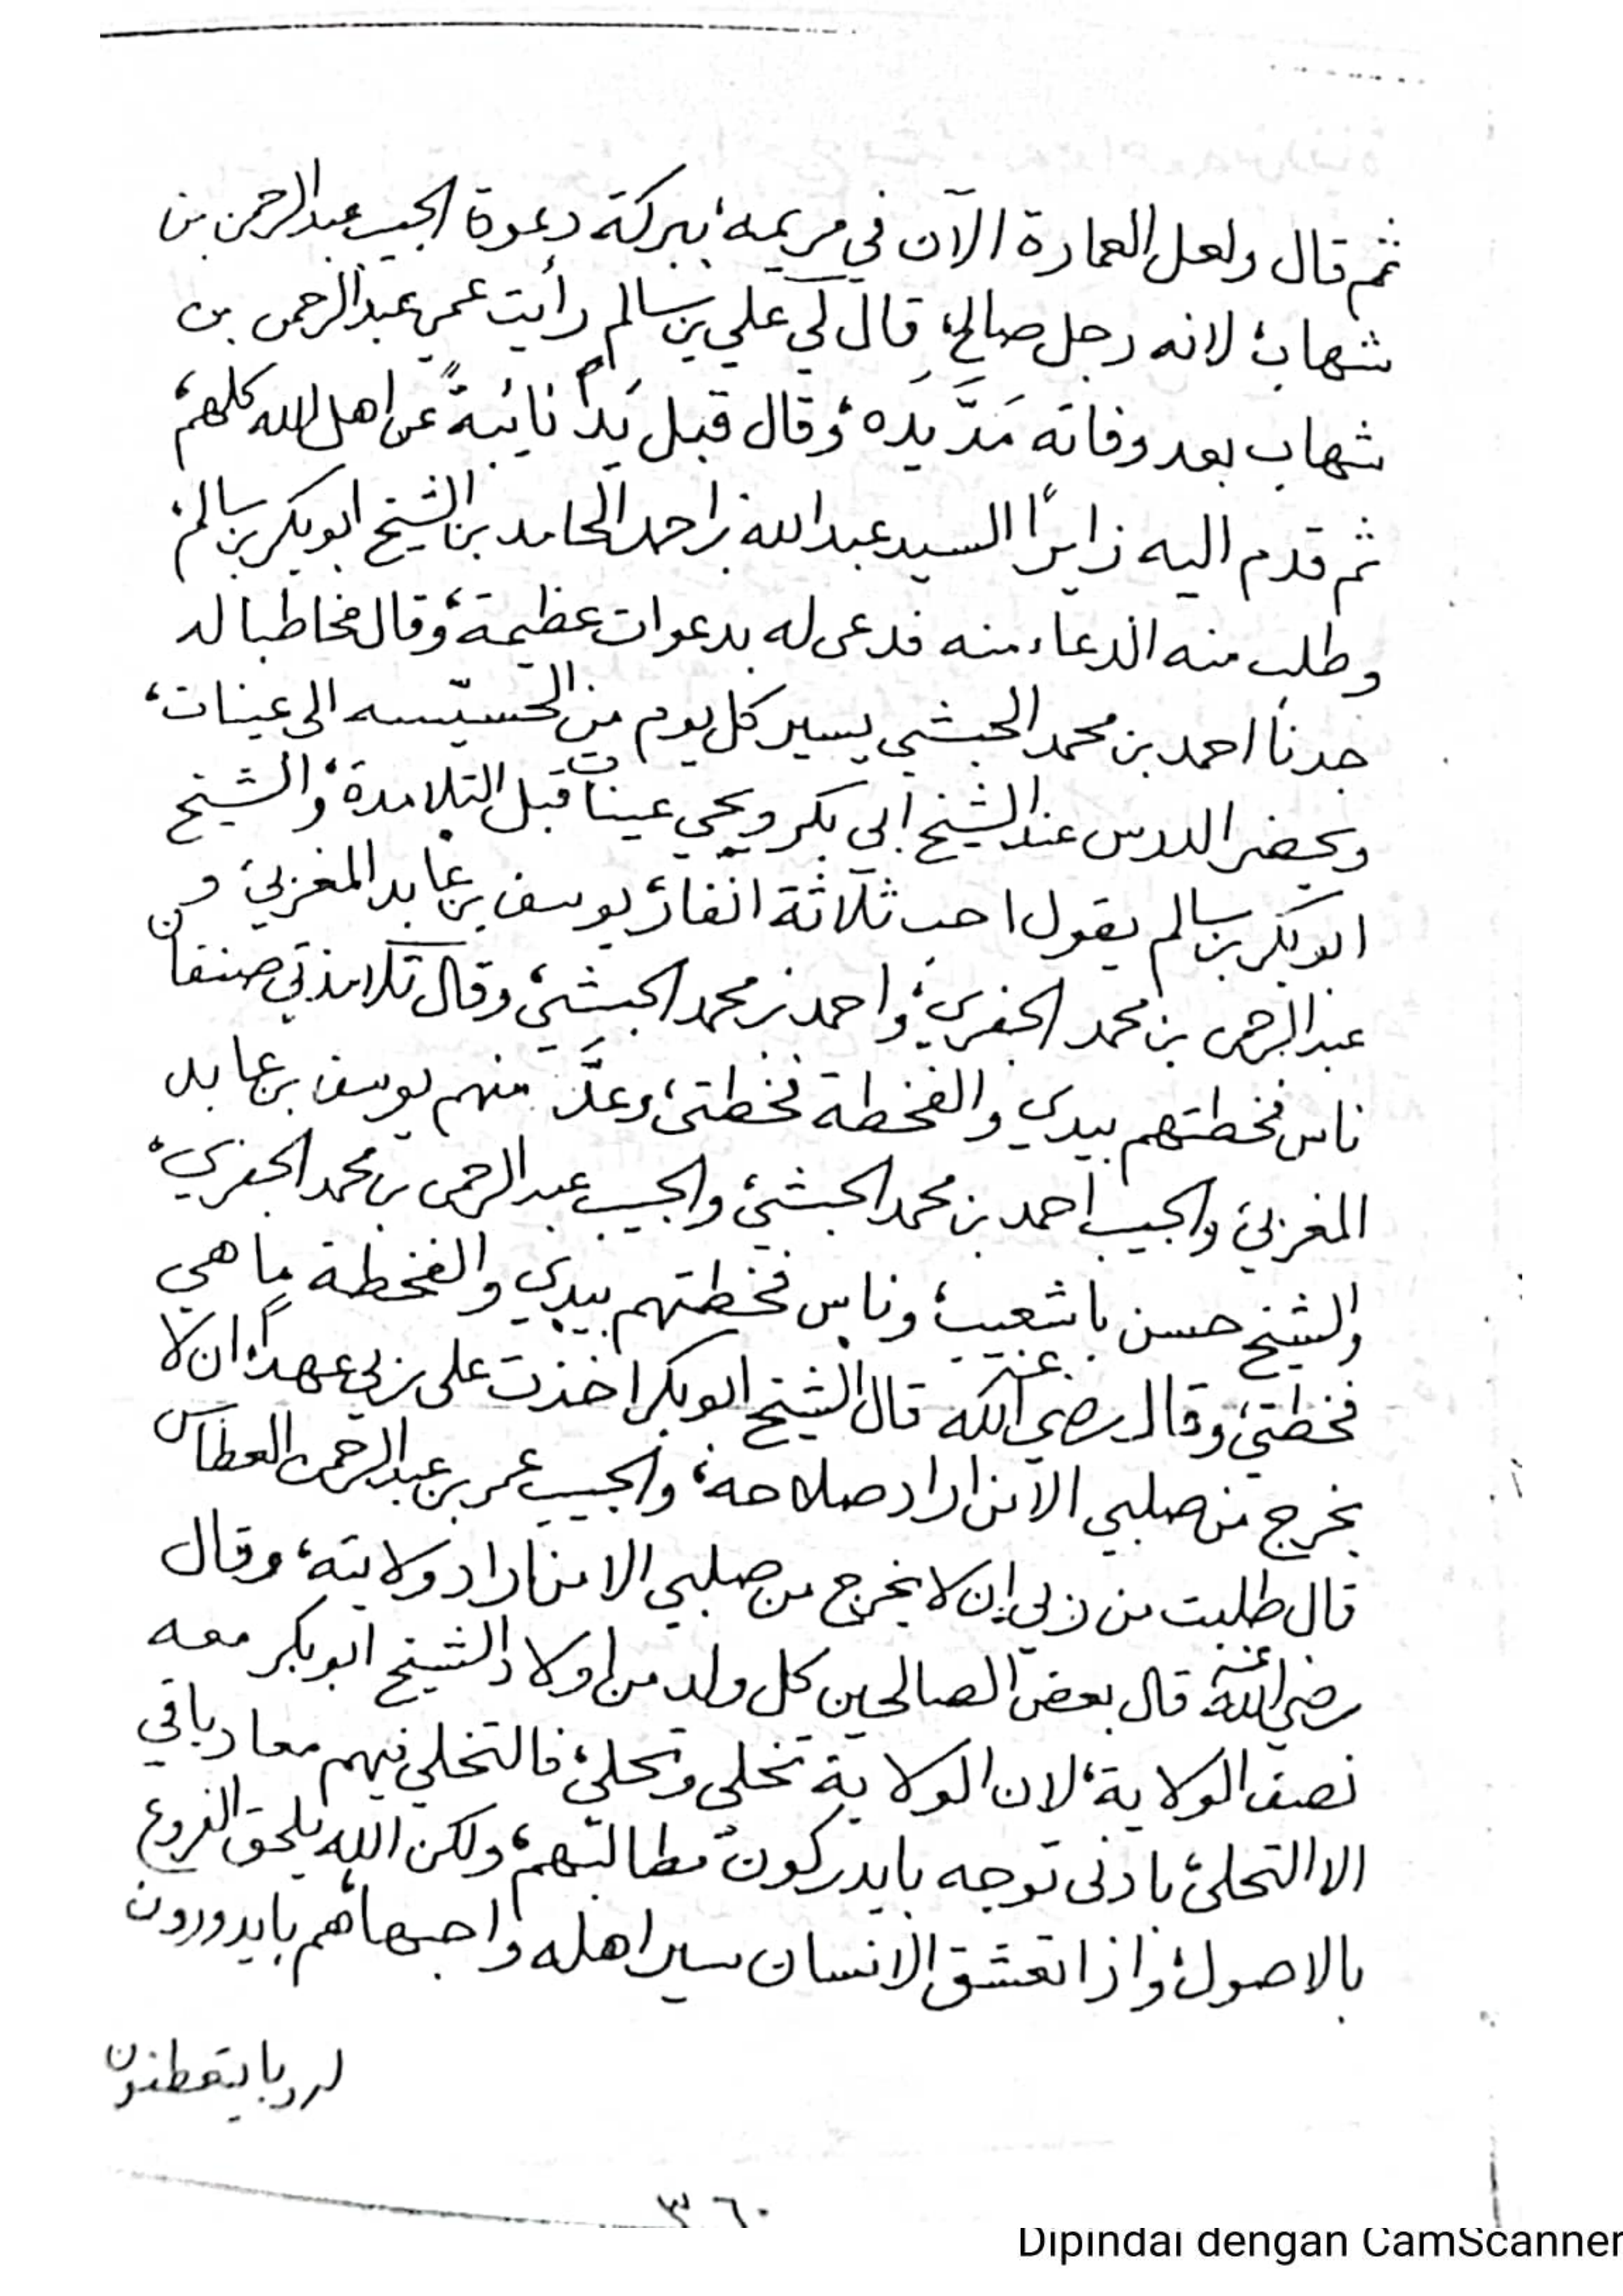 ثم قال ولعل العمارة الآن في مريمه، ببركة دعوة الحبيب عبدالرحمن بن
شهاب، لانه رجل صالح، قال لي علي بن سالم رأيت عمي عبدالرحمن بن
شهاب بعد وفاته مَدَّ يَده، وقال قبل يَداً نائبةً عن اهل الله كلهم،
ثم قدم اليه زايراً السيد عبدالله بن احمد الحامد بن الشيخ ابوبكر بن سالم،
وطلب منه الدعاء منه فدعى له بدعوات عظيمة، وقال مخاطبا له
جدنا احمد بن محمد الحبشي يسير كل يوم من الحسيّسه الى عينات،
ويحضر الدرس عند الشيخ أبي بكر ويجي عينات قبل التلامدة، والشيخ
ابوبكر بن سالم يقول احب ثلاثة انفار، يوسف بن عابد المغربي، و
عبدالرحمن بن محمد الجفري، واحمد بن محمد الحبشي، وقال تلامذتي صنفان
ناس فخطتهم بيدي والفخطة فخطتي، وعَدَّ منهم يوسف بن عابد
المغربي، والحبيب احمد بن محمد الحبشي، والحبيب عبدالرحمن بن محمد الجفري،
والشيخ حسن باشعيب، وناس فخطتهم بيدي والفخطة ما هي
فخطتي، وقال رضي الله عنه قال الشيخ ابوبكر اخذت على ربي عهداً، ان لا
يخرج من صلبي الا من اراد صلاحه، والحبيب عمر بن عبدالرحمن العطاس
قال طلبت من ربي ان لا يخرج من صلبي الا من اراد ولايته، وقال
رضي الله عنه قال بعض الصالحين كل ولد من اولاد الشيخ ابوبكر معه
نصف الولاية، لان الولاية تخلي وتحلي، فالتخلي فيهم معاد باقي
الا التحلي، بادنى توجه بايدركون مطالبهم، ولكن الله يلحق الفروع
بالاصول، واذا تعشق الانسان سير اهله واحبها، هم بايدورون
له وبايتعطفون
٣٦٠
Dipindai dengan CamScanner